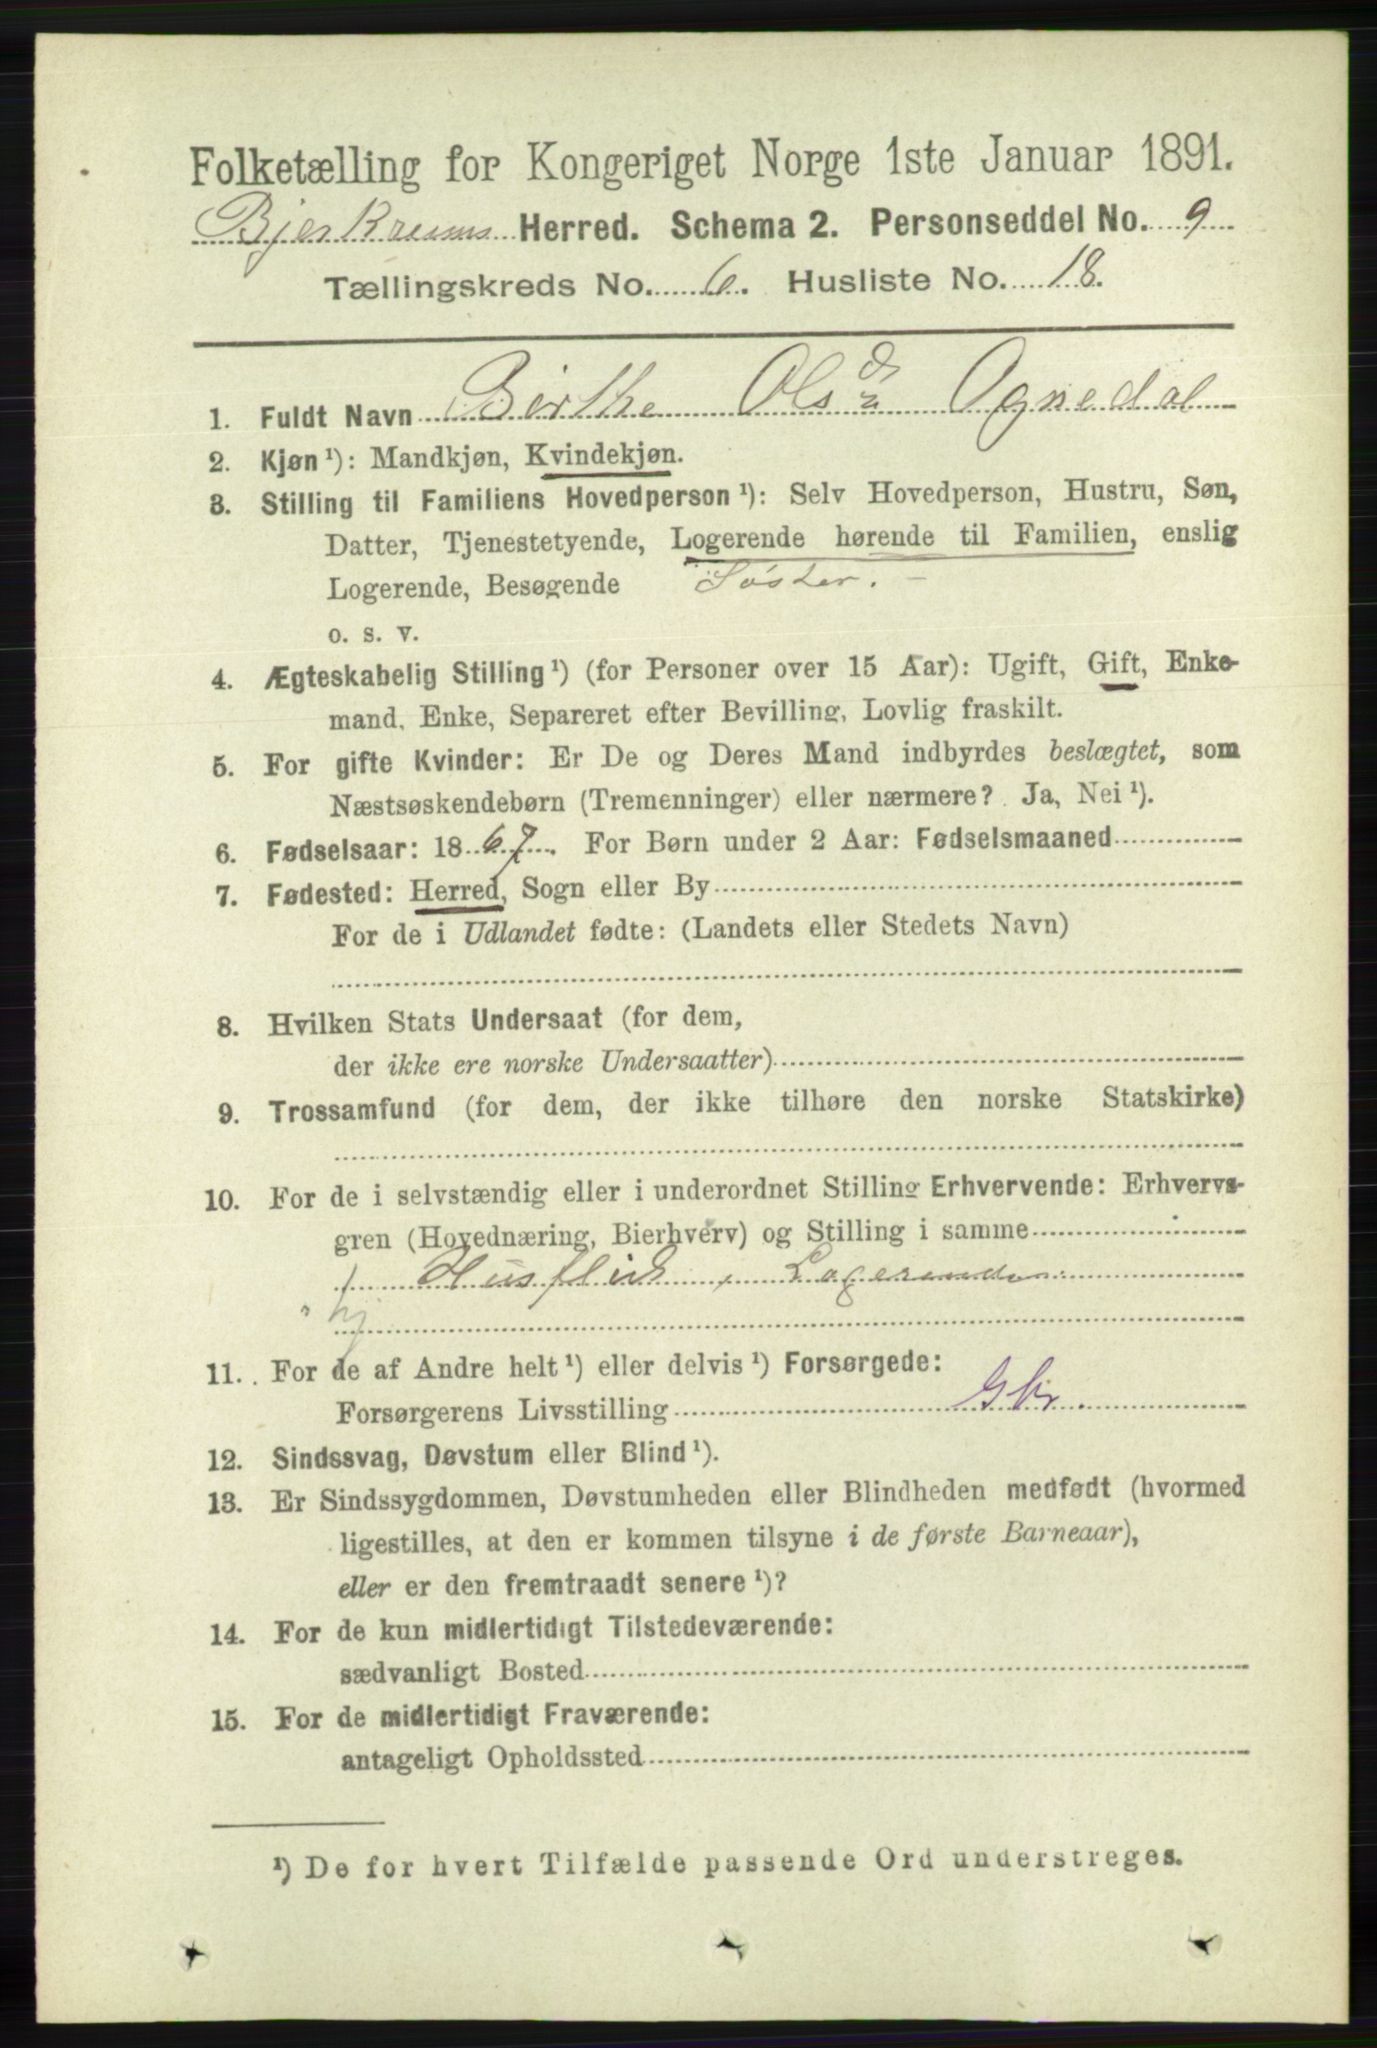 Folketælling for Kongeriget Norge 1ste Januar 1891.
Bjerkreims Herred. Schema 2. Personseddel No. 9
Tællingskreds No. 6. Husliste No. 18.
1. Fuldt Navn Birthe Olsdr Ognedal
2. Kjøn ¹): Mandkjøn, Kvindekjøn.
3. Stilling til Familiens Hovedperson ¹): Selv Hovedperson, Hustru, Søn,
Datter, Tjenestetyende, Logerende hørende til Familien, enslig
Logerende, Besøgende Søster. –
o. s. v.
4. Ægteskabelig Stilling ¹) (for Personer over 15 Aar): Ugift, Gift, Enke-
mand, Enke, Separeret efter Bevilling, Lovlig fraskilt.
5. For gifte Kvinder: Er De og Deres Mand indbyrdes beslægtet, som
Næstsøskendebørn (Tremenninger) eller nærmere? Ja, Nei ¹).
6. Fødselsaar: 1867. For Børn under 2 Aar: Fødselsmaaned
7. Fødested: Herred, Sogn eller By
For de i Udlandet fødte: (Landets eller Stedets Navn)
8. Hvilken Stats Undersaat (for dem,
der ikke ere norske Undersaatter)
9. Trossamfund (for dem, der ikke tilhøre den norske Statskirke)
10. For de i selvstændig eller i underordnet Stilling Erhvervende: Erhvervs-
gren (Hovednæring, Bierhverv) og Stilling i samme
Husflid, Logerende
11. For de af Andre helt ¹) eller delvis ¹) Forsørgede:
Forsørgerens Livsstilling Gbr.
12. Sindssvag, Døvstum eller Blind ¹).
13. Er Sindssygdommen, Døvstumheden eller Blindheden medfødt (hvormed
ligestilles, at den er kommen tilsyne i de første Barneaar),
eller er den fremtraadt senere ¹)?
14. For de kun midlertidigt Tilstedeværende:
sædvanligt Bosted
15. For de midlertidigt Fraværende:
antageligt Opholdssted
¹) De for hvert Tilfælde passende Ord understreges.